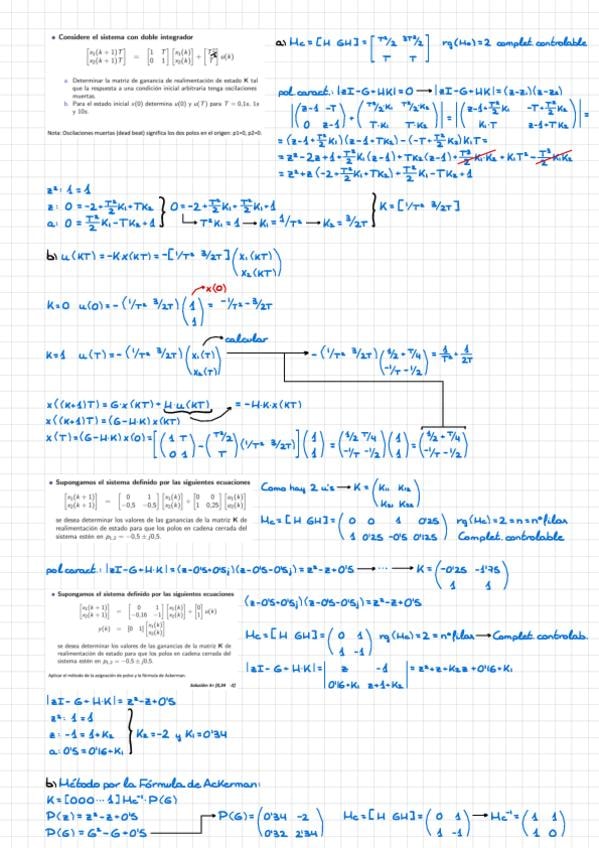 • Considere el sistema con doble integrador
[x₁(k+1)T] = [1 T] [x₁(k)] + [T²/2] u(k)
[x₂(k+1)T] [0 1] [x₂(k)] [T]
a. Determinar la matriz de ganancia de realimentación de estado K tal
que la respuesta a una condición inicial arbitraria tenga oscilaciones
muertas.
b. Para el estado inicial x(0) determina u(0) y u(T) para T = 0,1s, 1s
y 10s.
Nota: Oscilaciones muertas (dead beat) significa los dos polos en el origen: p1=0, p2=0.
a) Mc = [H GH] = [T²/2 3T²/2; T T] rg(Mc) = 2 complet. controlable
pol. caract.: |zI-G+HK| = 0 → |zI-G+HK| = (z-z₁)(z-z₂)
|(z-1 -T; 0 z-1) + (T²/2K₁ T²/2K₂; T·K₁ T·K₂)| = |(z-1+T²/2K₁ -T+T²/2K₂; K₁·T z-1+TK₂)| =
= (z-1+T²/2K₁)(z-1+TK₂) - (-T+T²/2K₂)K₁T =
= z²-2z+1+T²/2K₁(z-1)+TK₂(z-1)+T³/2K₁K₂+K₁T²-T³/2K₁K₂
= z²+z(-2+T²/2K₁+TK₂)+T²/2K₁-TK₂+1
z²: 1 = 1
z: 0 = -2+T²/2K₁+TK₂
a: 0 = T²/2K₁-TK₂+1
0 = -2+T²/2K₁+T²/2K₁+1
→ T²K₁ = 1 → K₁ = 1/T² → K₂ = 3/2T
K = [1/T² 3/2T]
b) u(KT) = -Kx(KT) = -[1/T² 3/2T](x₁(KT); x₂(KT))
x(0)
K=0 u(0) = -(1/T² 3/2T)(1; 1) = -1/T²-3/2T
calcular
K=1 u(T) = -(1/T² 3/2T)(x₁(T); x₂(T)) → -(1/T² 3/2T)(1/2+T/4; -1/T-1/2) = 1/T²+1/2T
x((K+1)T) = G·x(KT)+H·u(KT) = -H·K·x(KT)
x((K+1)T) = (G-H·K)x(KT)
x(T) = (G-H·K)x(0) = [(1 T; 0 1)-(T²/2; T)(1/T² 3/2T)](1; 1) = (1/2 T/4; -1/T -1/2)(1; 1) = (1/2+T/4; -1/T-1/2)
• Supongamos el sistema definido por las siguientes ecuaciones
[x₁(k+1)] = [0 1] [x₁(k)] + [0 0] [x₁(k)]
[x₂(k+1)] [-0,5 -0,5] [x₂(k)] [1 0,25] [x₂(k)]
se desea determinar los valores de las ganancias de la matriz K de
realimentación de estado para que los polos en cadena cerrada del
sistema estén en p₁,₂ = -0,5 ± j0,5.
Como hay 2 u's → K = (K₁₁ K₁₂; K₂₁ K₂₂)
Mc = [H GH] = (0 0 1 0'25; 1 0'25 -0'5 0'125) rg(Mc) = 2 = n = nº filas
Complet. controlable
pol caract.: |zI-G+H·K| = (z-0'5+0'5j)(z-0'5-0'5j) = z²-z+0'5 → ··· → K = (-0'25 -1'75; 1 1)
• Supongamos el sistema definido por las siguientes ecuaciones
[x₁(k+1)] = [0 1] [x₁(k)] + [0] u(k)
[x₂(k+1)] [-0,16 -1] [x₂(k)] [1]
y(k) = [0 1] [x₁(k); x₂(k)]
se desea determinar los valores de las ganancias de la matriz K de
realimentación de estado para que los polos en cadena cerrada del
sistema estén en p₁,₂ = -0,5 ± j0,5.
Aplicar el método de la asignación de polos y la fórmula de Ackerman.
Solución: k= [0,34 -2]
(z-0'5+0'5j)(z-0'5-0'5j) = z²-z+0'5
Mc = [H GH] = (0 1; 1 -1) rg(Mc) = 2 = nº filas → Complet. controlab.
|zI-G+H·K| = |z -1; 0'16+K₁ z+1+K₂| = z²+z+K₂z+0'16+K₁
|zI-G+H·K| = z²-z+0'5
z²: 1 = 1
z: -1 = 1+K₂
a: 0'5 = 0'16+K₁
K₂ = -2 y K₁ = 0'34
b) Método por la Fórmula de Ackerman:
K = [000 ··· 1]Mc⁻¹·P(G)
P(z) = z²-z+0'5
P(G) = G²-G+0'5 → P(G) = (0'34 -2; 0'32 2'34) Mc = [H GH] = (0 1; 1 -1) → Mc⁻¹ = (1 1; 1 0)